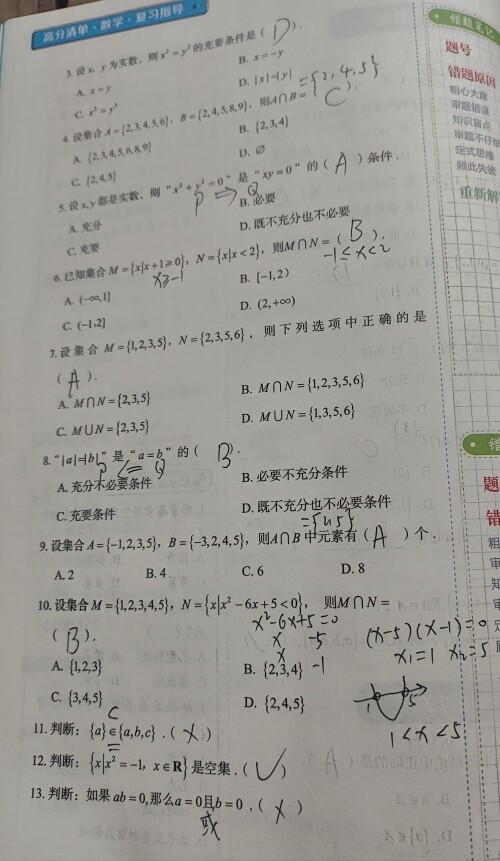 高分清单·数学·复习指导
3. 设x，y为实数，则x²=y²的充要条件是（ D ）.
A. x=y
B. x=-y
C. x³=y³
D. |x|=|y|
={2,4,5}
4. 设集合A={2,3,4,5,6}，B={2,4,5,8,9}，则A∩B=（ C ）.
A. {2,3,4,5,6,8,9}
B. {2,3,4}
C. {2,4,5}
D. ∅
5. 设x,y都是实数，则“x²+y²=0”是“xy=0”的（ A ）条件.
P ⇒ Q
A. 充分
B. 必要
C. 充要
D. 既不充分也不必要
6. 已知集合M={x|x+1≥0}，N={x|x<2}，则M∩N=（ B ）.
x≥-1
-1≤x<2
A. (-∞,1]
B. [-1,2)
C. (-1,2]
D. (2,+∞)
7. 设集合M={1,2,3,5}，N={2,3,5,6}，则下列选项中正确的是
（ A ）.
A. M∩N={2,3,5}
B. M∩N={1,2,3,5,6}
C. M∪N={2,3,5}
D. M∪N={1,3,5,6}
8. “|a|=|b|”是“a=b”的（ B ）.
P ⇐ Q
A. 充分不必要条件
B. 必要不充分条件
C. 充要条件
D. 既不充分也不必要条件
={2,5}
9. 设集合A={-1,2,3,5}，B={-3,2,4,5}，则A∩B中元素有（ A ）个.
A. 2
B. 4
C. 6
D. 8
10. 设集合M={1,2,3,4,5}，N={x|x²-6x+5<0}，则M∩N=
（ B ）.
x²-6x+5=0
x -5
x -1
(x-5)(x-1)=0
x₁=1 x₂=5
A. {1,2,3}
B. {2,3,4}
C. {3,4,5}
D. {2,4,5}
1 5
1<x<5
⊆
11. 判断：{a}∈{a,b,c}.（ × ）
12. 判断：{x|x²=-1，x∈R}是空集.（ √ ）
13. 判断：如果ab=0,那么a=0且b=0.（ × ）
或
错题笔记
题号
错题原因
粗心大意
审题错误
知识盲点
审题不仔细
定式思维
顾此失彼
重新解
错
题
错